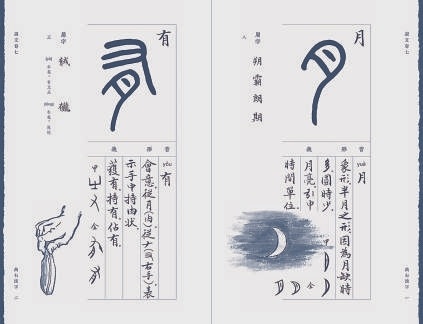 說文卷七
月
音
形
義
yuè 月
象形。半月之形，因為月缺時
多，圓時少。
月亮。引申
時間單位。
甲
金
屬字
八
朔 霸 朗 期
有
音
形
義
yǒu 有
會意。從月(肉)從ナ(又右手)。表
示手中持肉狀。
獲有、持有、佔有。
甲
金
屬字
說文卷七